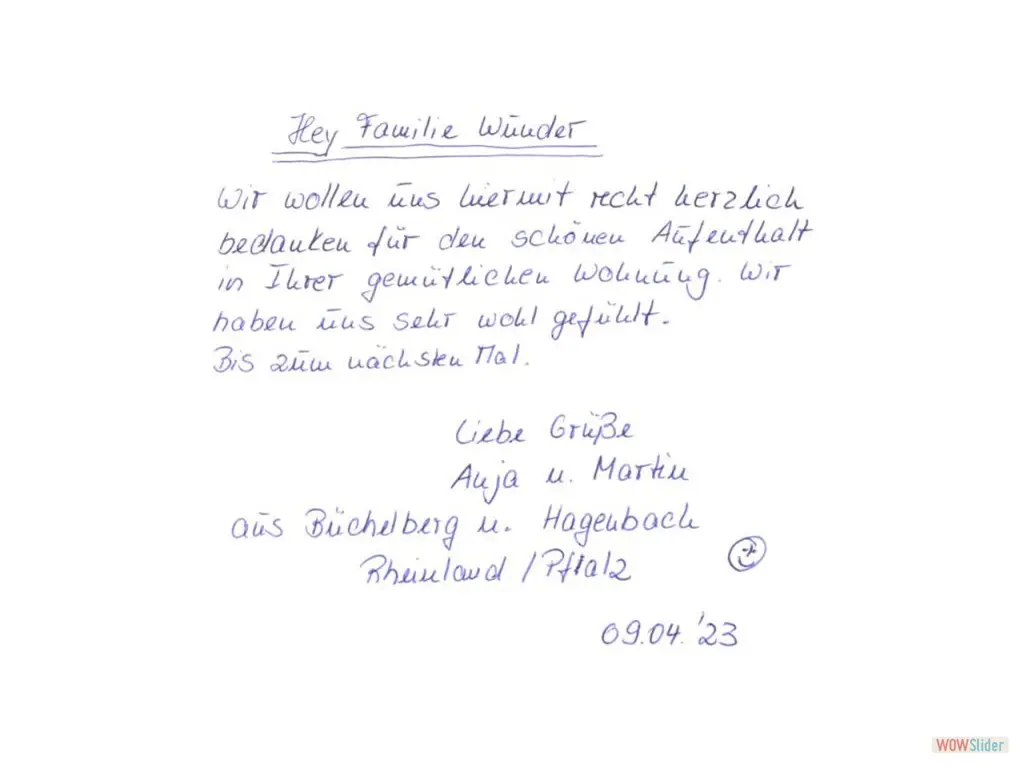 Hey Familie Wunder
Wir wollen uns hiermit recht herzlich
bedanken für den schönen Aufenthalt
in Ihrer gemütlichen Wohnung. Wir
haben uns sehr wohl gefühlt.
Bis zum nächsten Mal.
Liebe Grüße
Anja u. Martin
aus Büchelberg u. Hagenbach
Rheinland/Pfalz
09.04.'23
WOWSlider